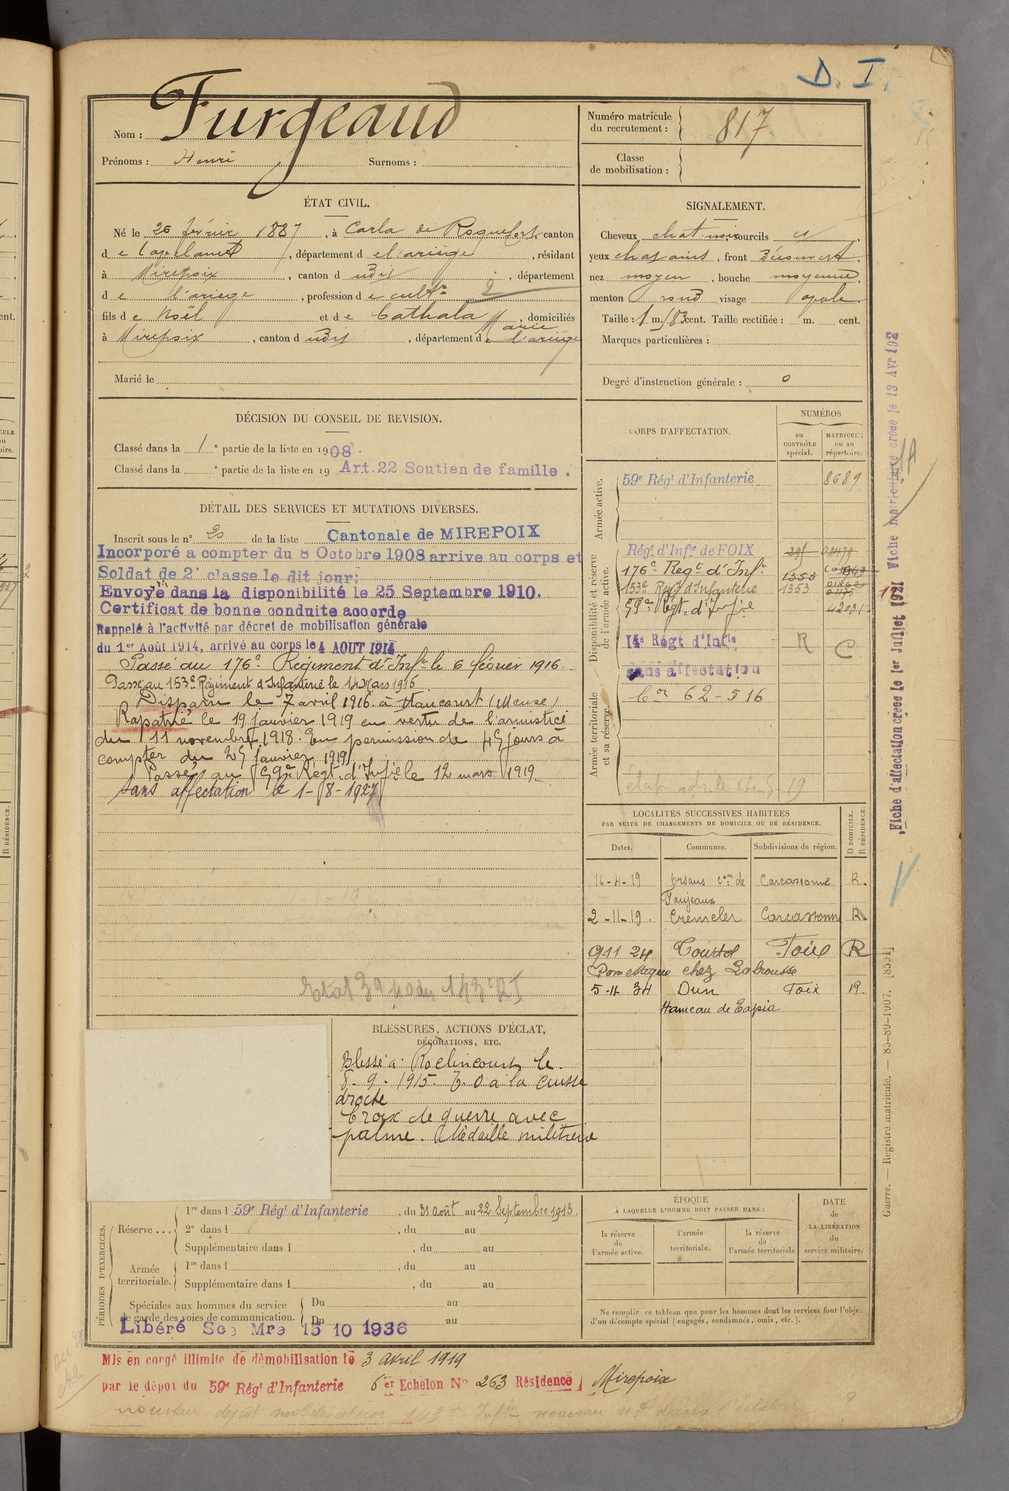 D. I.
Nom : Furgeaud
Prénoms : Henri Surnoms :
Numéro matricule du recrutement : 817
Classe de mobilisation :
ÉTAT CIVIL.
Né le 26 février 1887, à Carla de Roquefort, canton
de Lavelanet, département de l'ariège, résidant
à Mirepoix, canton dudit, département
de l'ariège, profession de cultr 2
fils de Noël et de Cathala Marie, domiciliés
à Mirepoix, canton dudit, département de l'ariège
Marié le
SIGNALEMENT.
Cheveux chat sourcils
yeux chatains, front Découvert,
nez moyen, bouche moyenne,
menton rond visage ovale
Taille : 1 m. 83 cent. Taille rectifiée : m. cent.
Marques particulières :
Degré d'instruction générale : 0
DÉCISION DU CONSEIL DE REVISION.
Classé dans la 1e partie de la liste en 1908.
Classé dans la e partie de la liste en 19 Art. 22 Soutien de famille.
DÉTAIL DES SERVICES ET MUTATIONS DIVERSES.
Inscrit sous le n° 20 de la liste Cantonale de MIREPOIX
Incorporé a compter du 8 Octobre 1908 arrive au corps et
Soldat de 2e classe le dit jour;
Envoyé dans la disponibilité le 25 Septembre 1910.
Certificat de bonne conduite accordé
Rappelé à l'activité par décret de mobilisation générale
du 1er Août 1914, arrivé au corps le 4 AOUT 1914
Passé au 176e Régiment d'Infie le 6 février 1916.
Passé au 153e Régiment d'Infanterie le 14 Mars 1916
Disparu le 7 avril 1916 à Haucourt (Meuse)
Rapatrié le 19 janvier 1919 en vertu de l'armistice
du 11 novembre 1918. En permission de 45 jours à
compter du 25 janvier 1919
Passé au 59e Régt. d'Infie le 12 mars 1919
Sans affectation le 1-8-1927
CORPS D'AFFECTATION.
NUMÉROS
AU CONTRÔLE spécial.
MATRICULE ou au répertoire.
Armée active.
59e Régt d'Infanterie 8689
Disponibilité et réserve de l'armée active.
Régt d'Infie de FOIX
176e Regt d'Infie 1353
153e Régt d'Infanterie 1353
59e Régt. d'Infie
14e Régt d'Infie R C
sans affectation
Armée territoriale et sa réserve.
62-516
LOCALITÉS SUCCESSIVES HABITÉES
PAR SUITE DE CHANGEMENTS DE DOMICILE OU DE RÉSIDENCE.
Dates. Communes. Subdivisions de région. D DOMICILE. R RÉSIDENCE.
16-4-19 Carcassonne R.
Fanjeaux
2-11-19. Carcassonne R.
9 11 24 Foix R
chez Labrousse
5-11 34 Dun Foix R.
Hameau de
BLESSURES, ACTIONS D'ÉCLAT,
DÉCORATIONS, ETC.
Blessé à Roclincourt le
8-9-1915 E. O à la cuisse
droite
Croix de guerre avec
palme. Médaille militaire
PÉRIODES D'EXERCICES.
Réserve...
1re dans l 59e Régt d'Infanterie, du 31 août au 22 Septembre 1913.
2e dans l , du au
Supplémentaire dans l , du au
Armée territoriale.
1re dans l , du au
Supplémentaire dans l , du au
Spéciales aux hommes du service de garde des voies de communication.
Du au
Du au
Libéré Sce Mre 15 10 1936
ÉPOQUE
À LAQUELLE L'HOMME DOIT PASSER DANS :
la réserve de l'armée active.
l'armée territoriale.
la réserve de l'armée territoriale
DATE de LA LIBÉRATION du service militaire.
Ne remplir ce tableau que pour les hommes dont les services font l'objet
d'un décompte spécial (engagés, condamnés, omis, etc.).
Mis en congé illimité de démobilisation le 3 avril 1919
par le dépôt du 59e Régt d'Infanterie 6er Echelon No 263 Résidence Mirepoix
Fiche d'affectation creee le 1er Juillet 1921
Fiche matriculaire creee le 13 Avr 192
Guerre. — Registre matricule. — 85-89-1907. [8551]